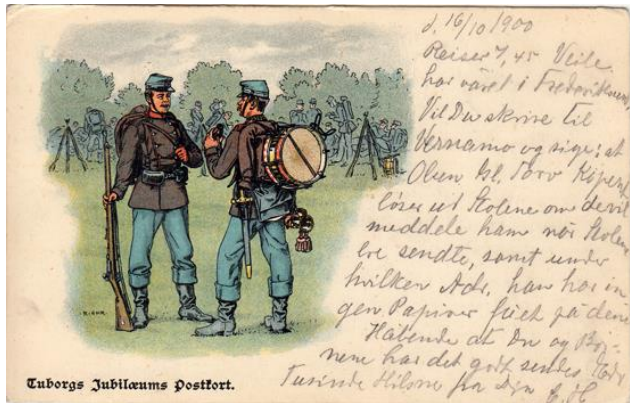 d. 16/10 1900
Reiser 7,45 Veile
har været i Fredericia
Vil Du skrive til
Vernamo og sige: at
Olsen Hl. Torv Kjøpenh
løser ud Stolene om de vil
meddele ham når Stolene
ere sendte, samt under
hvilken Adr. han har in
gen Papirer fået på dem
Håbende at Du og Bør-
nene har det godt sendes
Tusinde Hilsner fra Din
R. CHR.
Tuborgs Jubilæums Postkort.